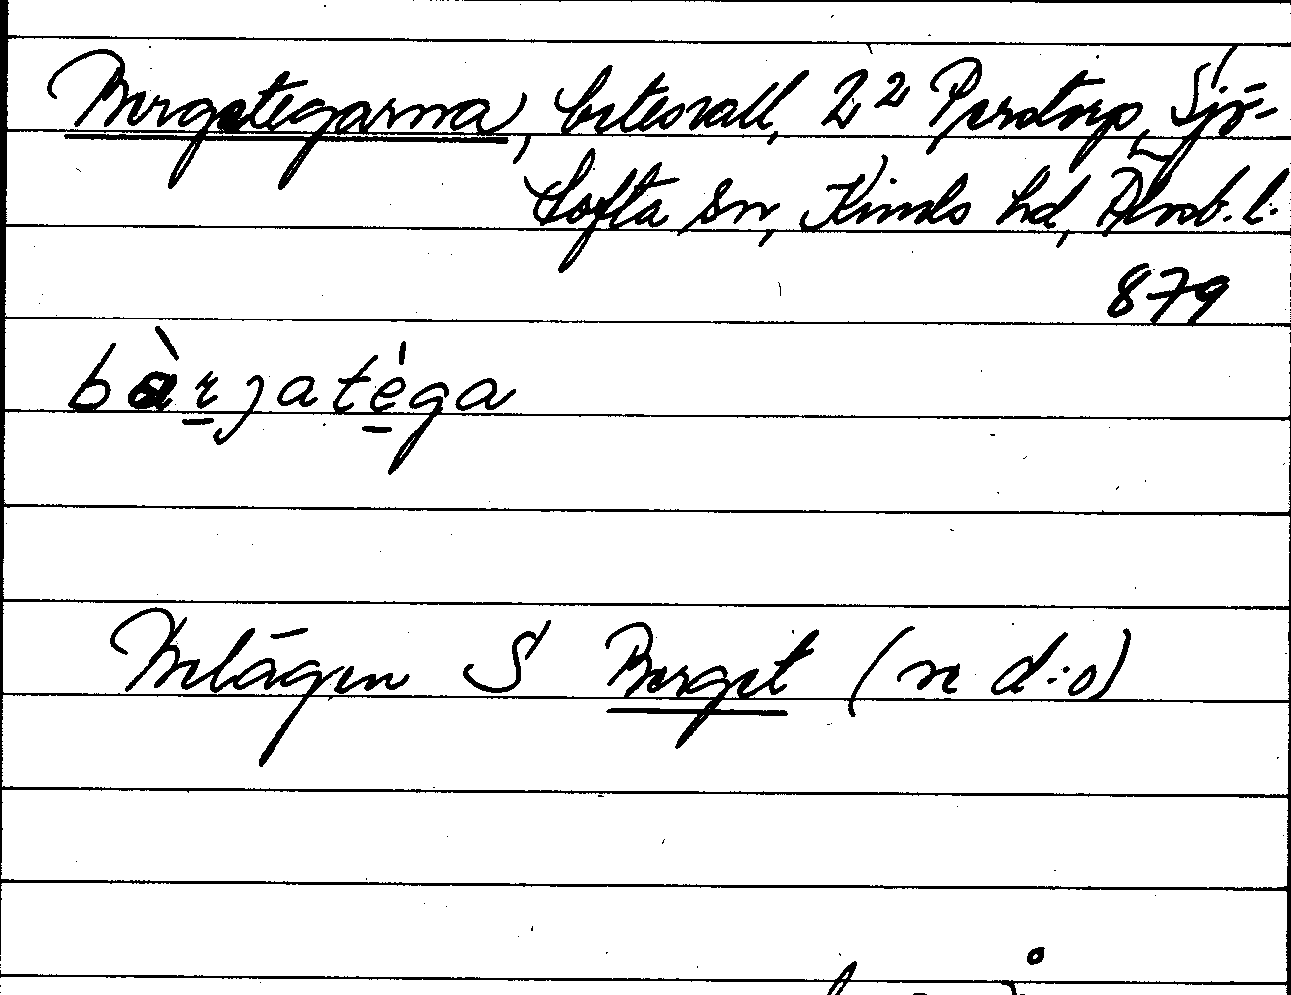 Bergategarna, betesvall, 2² Perstorp, Sjö-
tofta sn, Kinds hd, Älvsb. l.
879
bàrjatéga
Belägen S Berget (n d:o)